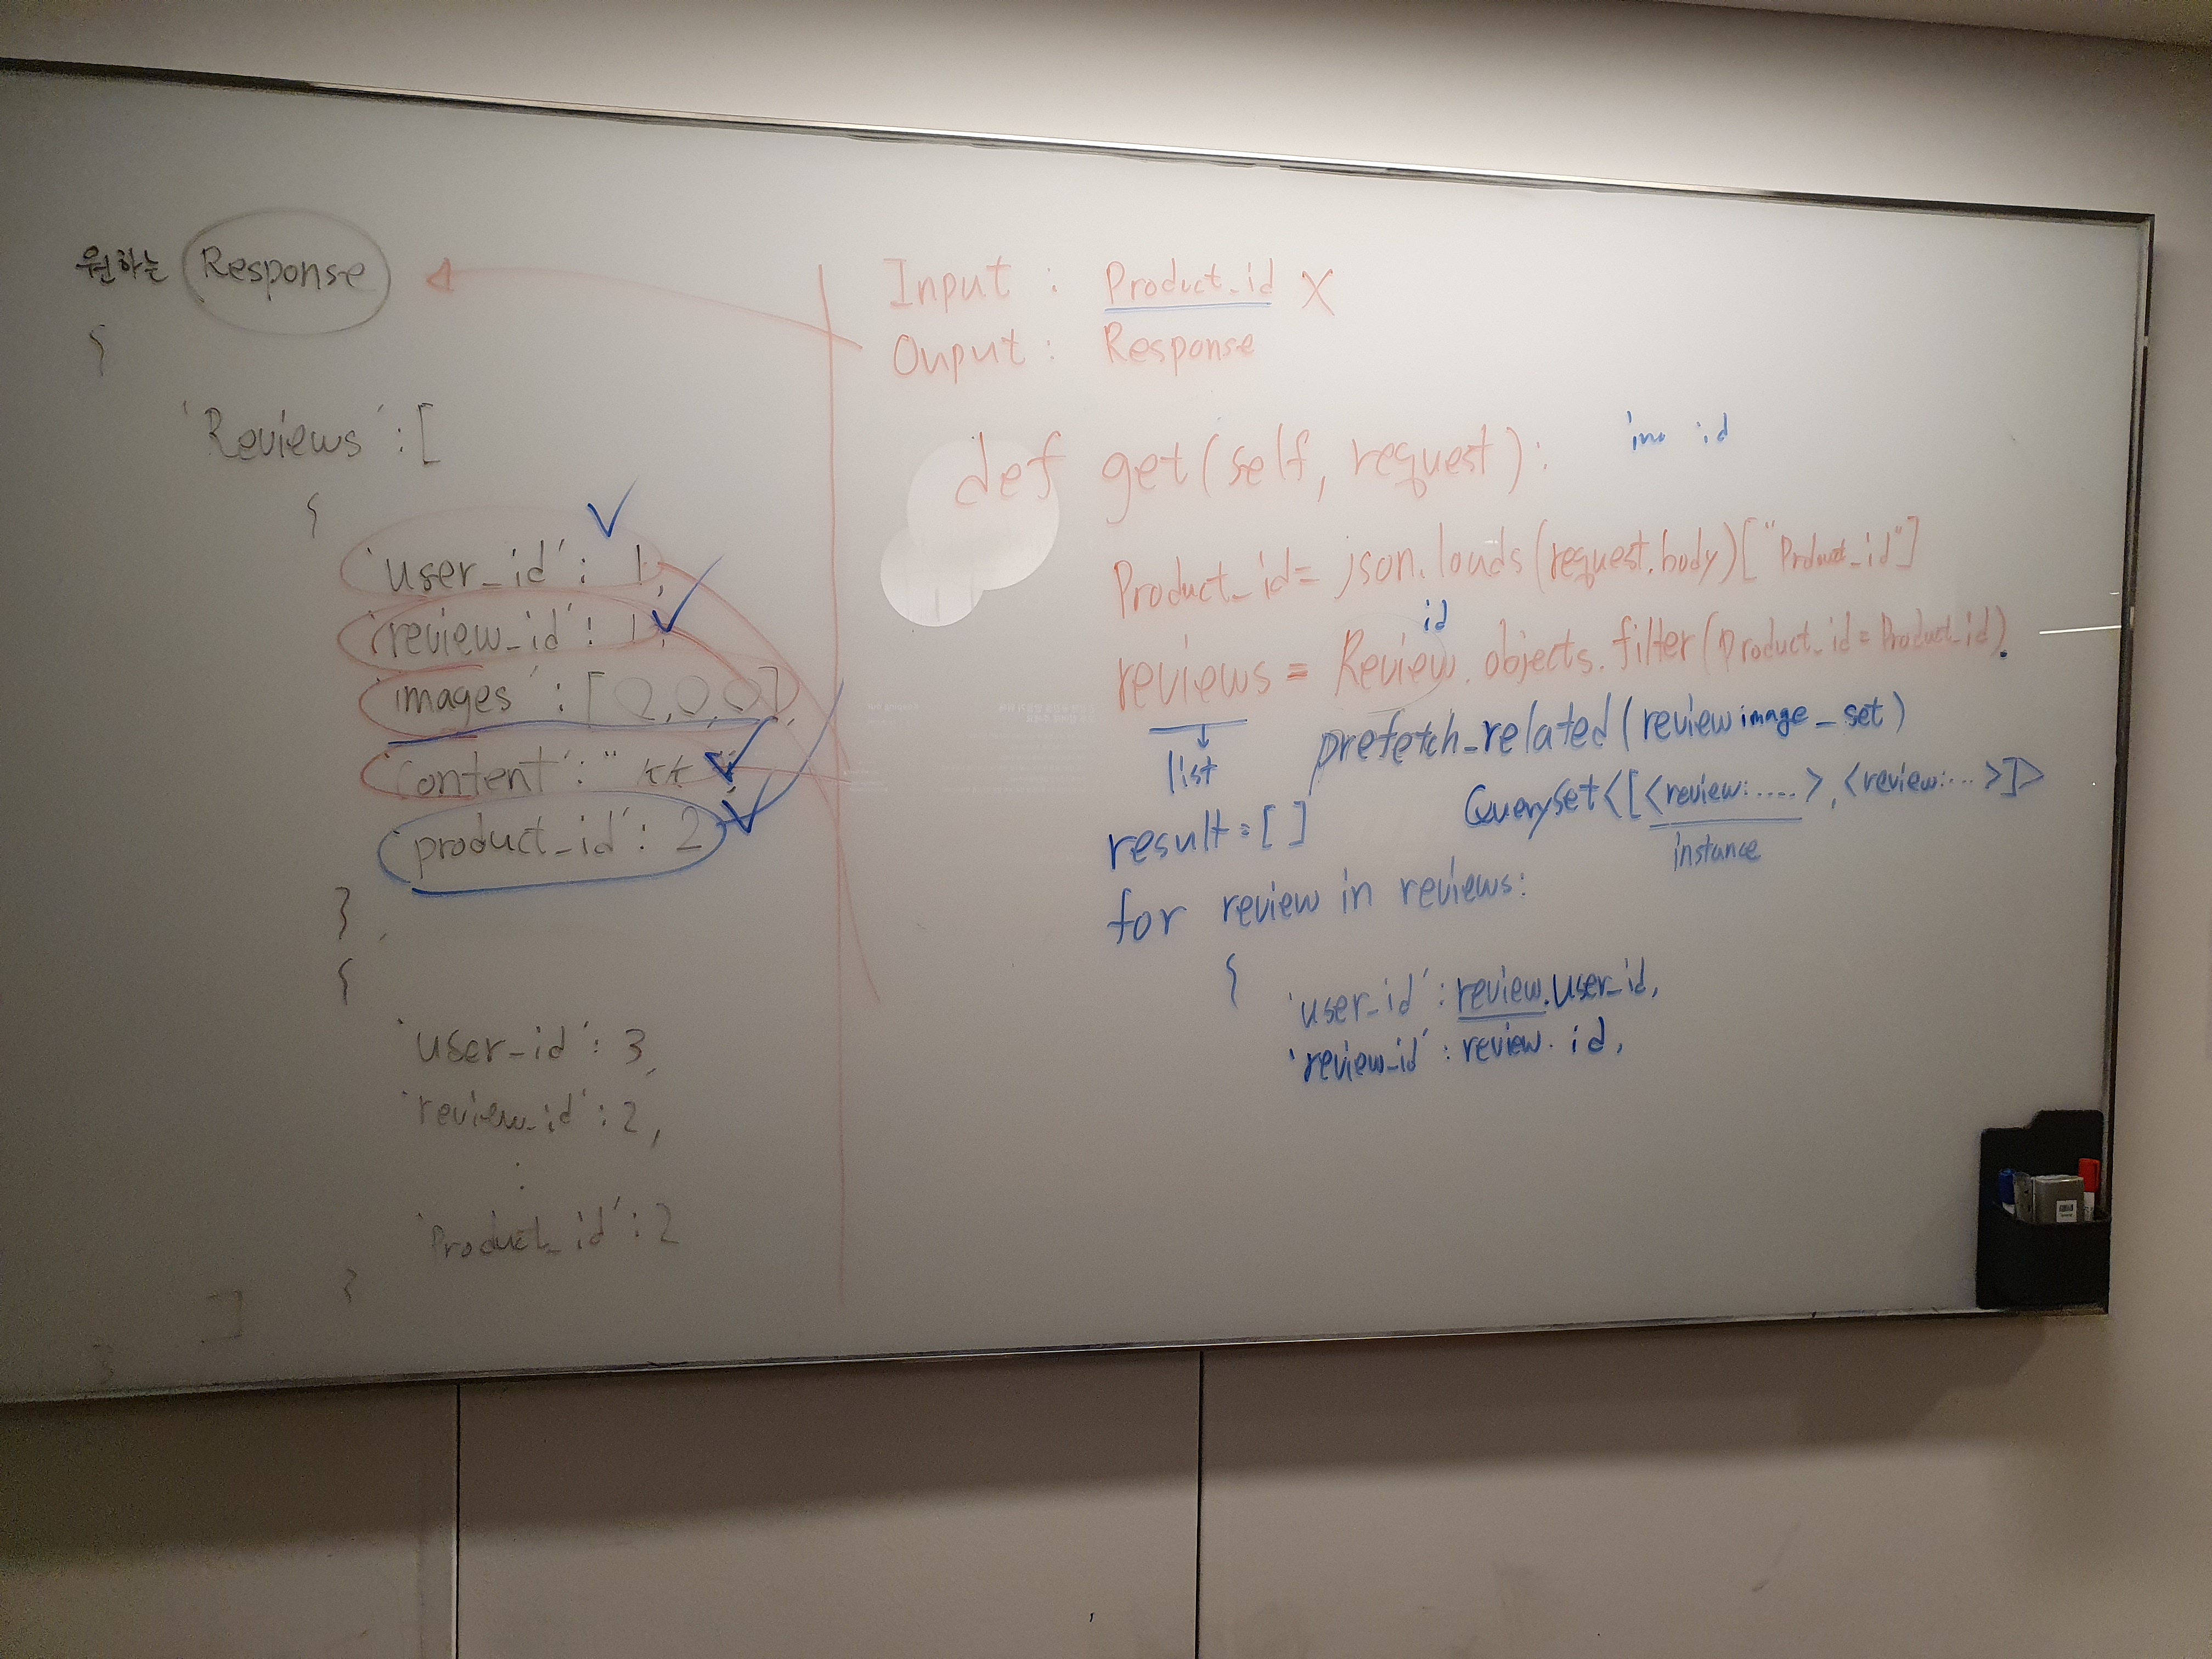 원하는 Response
{
'Reviews' : [
{
'user_id' : 1,
'review_id' : 1,
'images' : [O,O,O],
'content' : " ㅉㅉ ",
'product_id' : 2
},
{
'user_id' : 3,
'review_id' : 2,
:
'Product_id' : 2
}
]
}
Input : Product_id X
Ouput : Response
def get(self, request):
id
Product_id = json.loads(request.body)["Product_id"]
id
reviews = Review.objects.filter(product_id = Product_id).
list
prefetch_related(reviewimage_set)
QuerySet<[<review:.....>,<review:...>]>
instance
result = [ ]
for review in reviews:
{
'user_id' : review.user_id,
'review_id' : review.id,